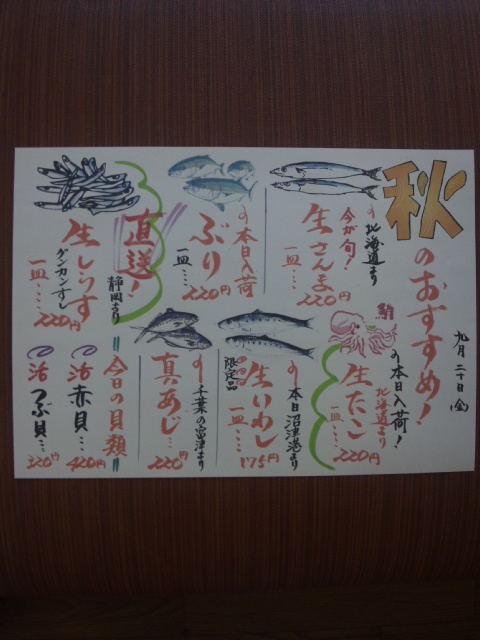 秋のおすすめ!
九月二十日(金)
北海道より
今が旬!
生さんま
一皿…220円
本日入荷
ぶり
一皿…220円
静岡より
直送!
生しらす
グンカンずし
一皿…220円
本日入荷!
北海道より
生たこ
一皿…220円
本日沼津港より
生いわし
限定品
一皿…175円
千葉の富津より
真あじ…
220円
今日の貝類
活赤貝…
420円
活つぶ貝…
320円